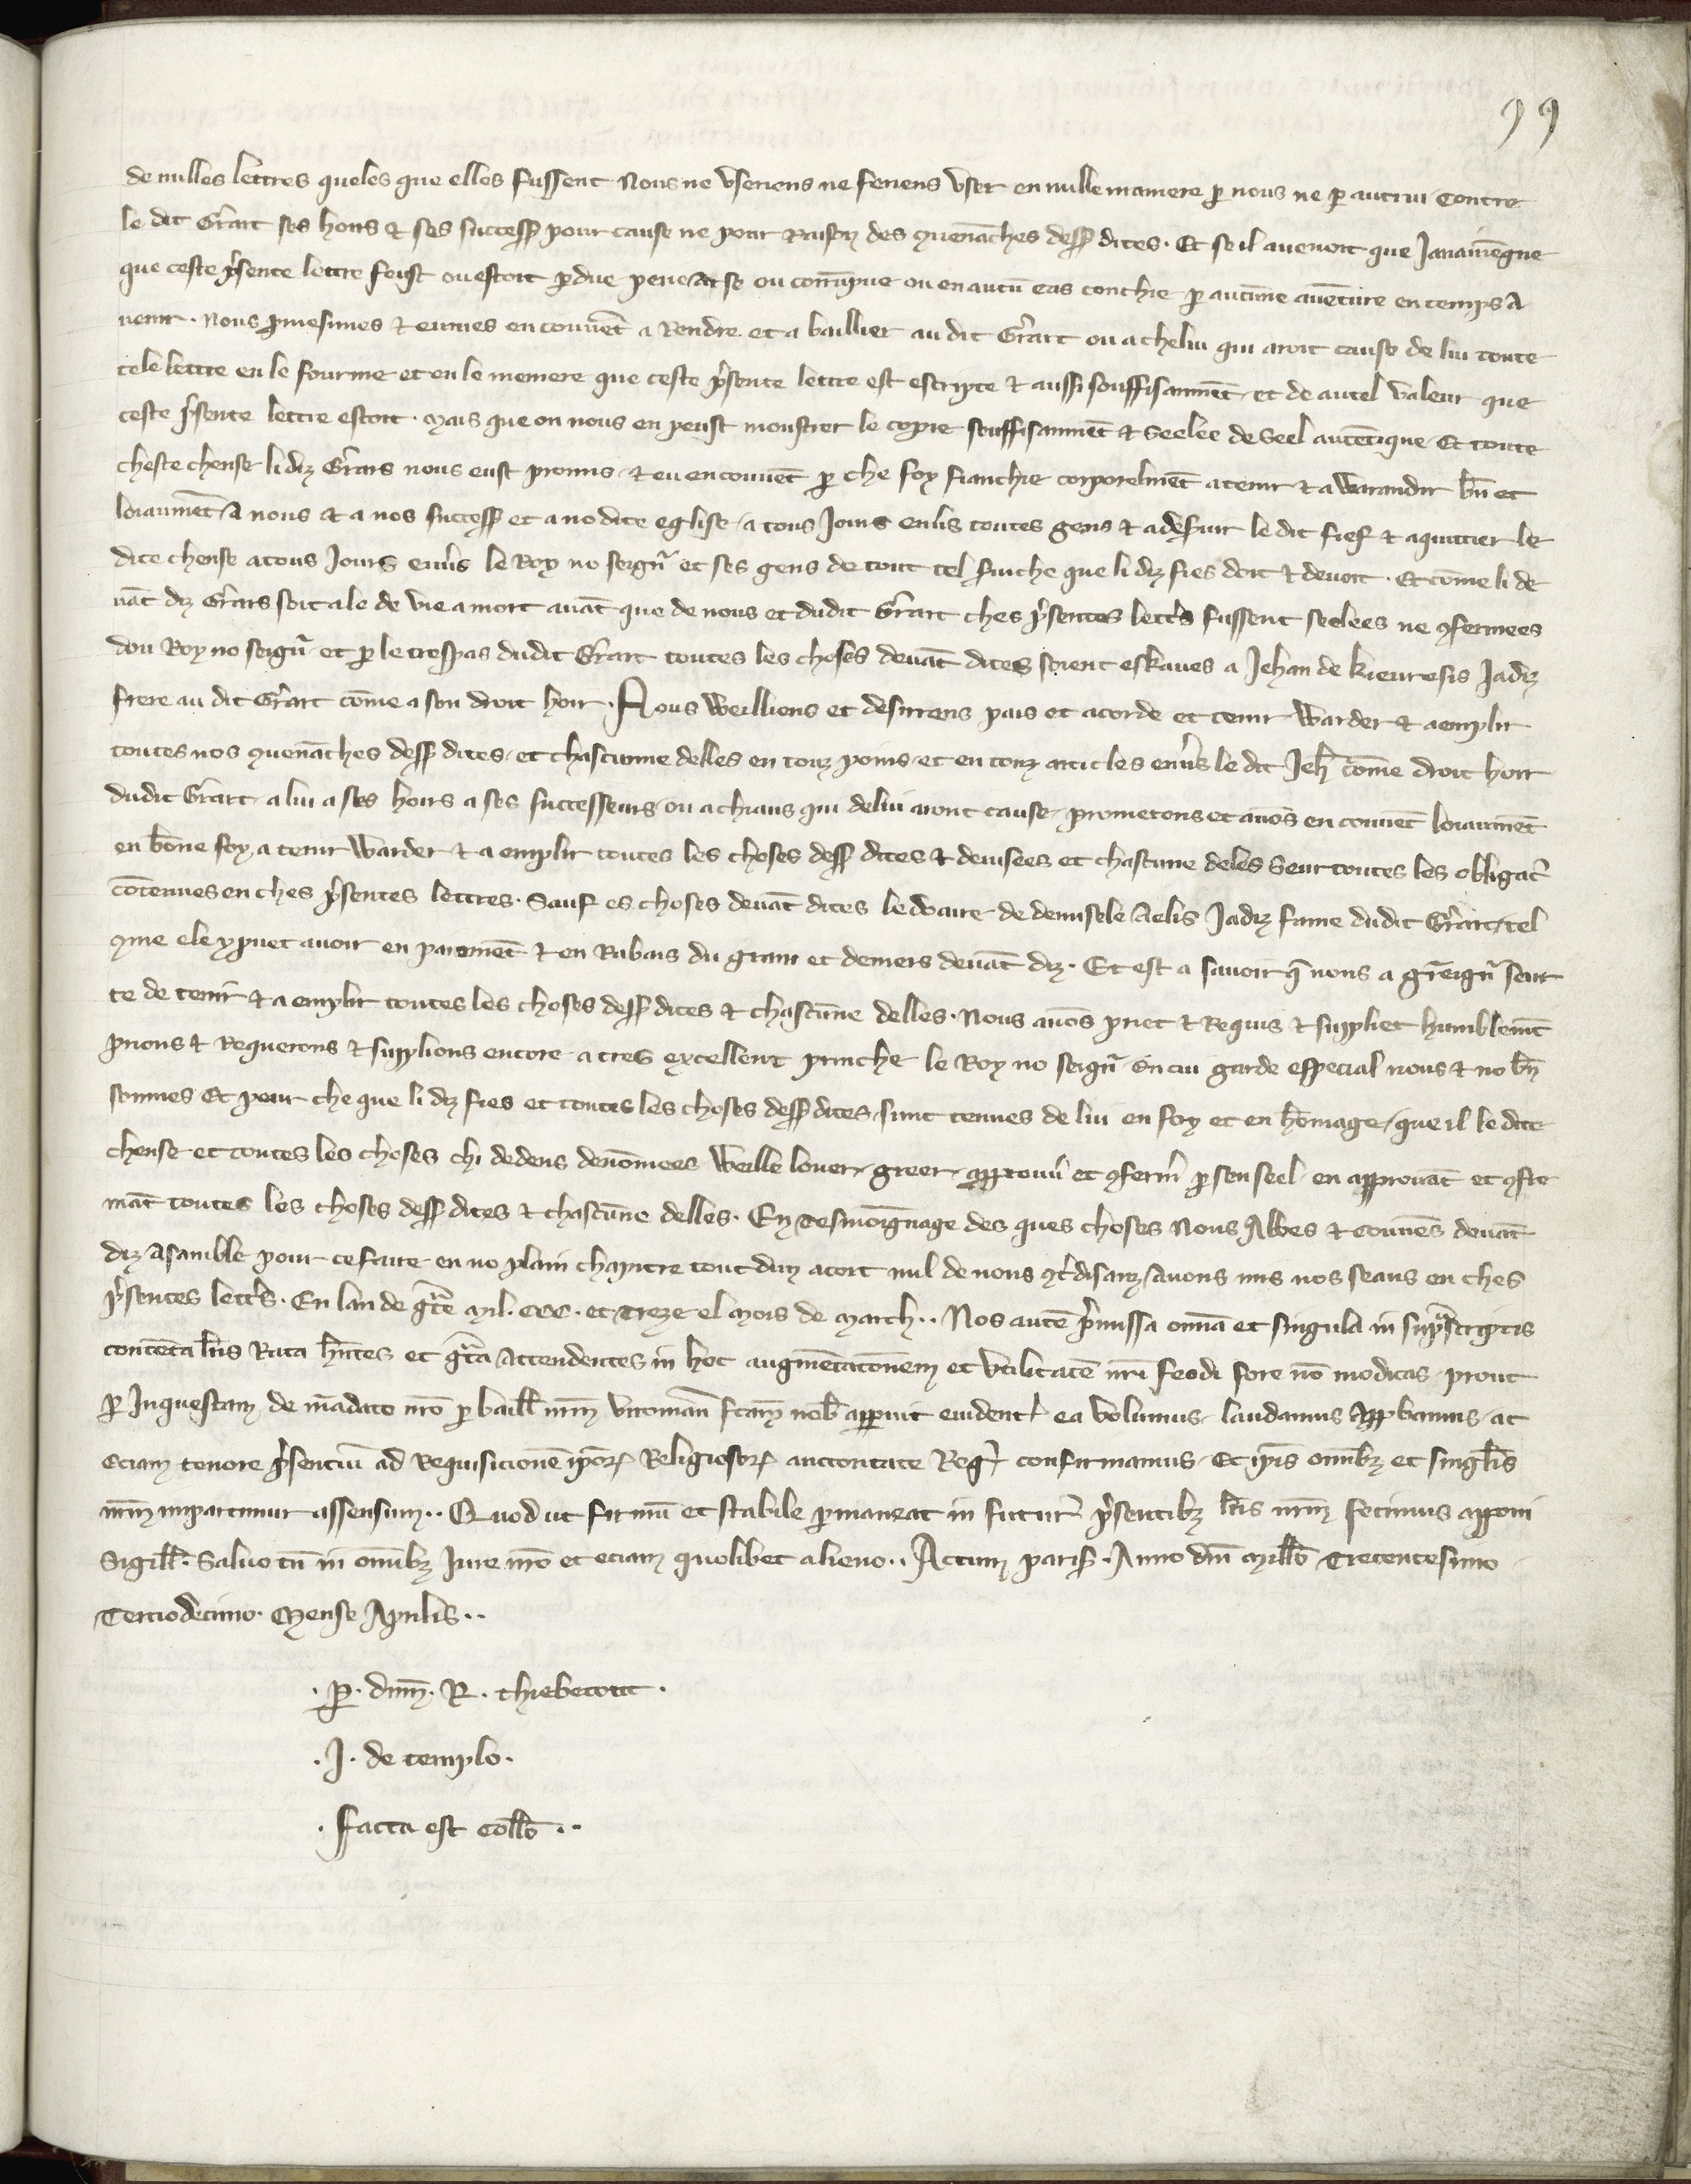 99
de nulles lettres queles que elles fussent nous ne useriens ne feriens user en nulle maniere p̱ nous ne p̱ autrui contre
le dit Gẽrart ses hoirs ⁊ ses success̃ pour cause ne pour raison des quenãches dess̃ dites. Et se il avenoit que ja avieñgne
que ceste p̃sente lettre feust ou estoit p̱due ou corrũpue ou en autũ cas p̱ aucune avẽture en temps a
venir. Nous p̱mesimes ⁊ eumes en couvẽt a rendre et a baillier au dit Gẽrart ou a chelui qui aroit cause de lui toute
tele lettre en le fourme et en le meniere que ceste p̃sente lettre est escripte ⁊ aussi souffisãmẽt et de autel valeur que
ceste p̃sente lettre estoit. Mais que on nous en peust monstrer le copie souffisãmẽt ⁊ seelee de seel autẽtique. Et toute
cheste chense li diz Gẽrars nous eust promis ⁊ eu en couvẽt p̱ che foy fianchie corporelmẽt a tenir ⁊ a warandir bñ et
loiaumẽt a nous et a nos success̃ et a no dite eglise a tous jours envs̃ toutes gens ⁊ a deservir le dit fief ⁊ aquittier le
dite chense a tous jours envs̃ le Roy no seigñ et ses gens de tout tel serviche que li diz fies doit ⁊ devoit. Et cõme li de
vãt diz Gẽrars soit ale de vie a mort avãt que de nous et dudit Gẽrart ches p̃sentes lett̃s fussent seelees ne ꝯfermees
dou Roy no seigñ et p̱ le trespas dudit Gẽrart toutes les choses devãt dites soient eskaues a Jehan de Kievresis jadiz
frere au dit Gẽrart cõme a son droit hoir. Nous weilliens et desirrens pais et acorde et tenir warder ⁊ aemplir
toutes nos quenãches dess̃ dites et chascunne delles en touz poins et en touz articles envs̃ le dit Jeh̃ cõme droit hoir
dudit Gẽrart a lui a ses hoirs a ses successeurs ou a chiaus qui de lui aront cause prometons et avõs en couvẽt loiaumẽt
en bõne foy a tenir warder ⁊ a emplir toutes les choses dess̃ dites ⁊ devisees et chascune deles seur toutes les obligac̃
cõtenues en ches p̃sentes lettres. Sauf es choses devãt dites le doaire de demisele Aelis jadiz fame dudit Gẽrart tel
que ele y puet avoir en paiemẽt ⁊ en rabais du grain et deniers devãt diz. Et est a savoir q̃ nous a gr̃eigñ seur
te de tenir ⁊ a emplir toutes les choses dess̃ dites ⁊ chascũne delles. Nous avõs priet ⁊ requis ⁊ suppliet humblemẽt
prions ⁊ requerons ⁊ supplions encore a tres excellent prinche le Roy no seigñ en cui garde especial nous ⁊ no bñ
sommes Et pour che que li diz fies et toutes les choses dess̃ dites sunt tenues de lui en foy et en hõmage que il le dite
chense et toutes les choses chi dedens denõmees weille louer greer approuv̾ et ꝯferm̾ p̱ sen seel en approuvãt et ꝯfer
mãt toutes les choses dess̃ dites ⁊ chascũne delles. En tesmoignage des ques choses nous Abbes ⁊ couvẽs devãt
diz asamble pour ce faire en no plain chapitre tout dun acort nul de nous ꝯt̃disanz avons mis nos seaus en ches
p̃sentes lett̃s. En lan de gr̃ce Mil. CCC. et treze el mois de March.. Nos autẽ p̃missa om̃ia et singula in sup̃scriptis
contẽta lr̃is rata hñtes et gr̃ta attendentes in hoc augmẽtationem et utilitatẽ nr̃i feodi fore nõ modicas prout
p̱ inquestam de mãdato nr̃o p̱ baill̃ nr̃m Viromañ fc̃am nob̃ apparuit evident̾ ea volumus laudamus app̱bamus ac
eciam tenore p̃sentiũ ad requisicionẽ ip̃orꝝ religiosorꝝ auctoritate Reg̾ confirmamus. Et ip̃is om̃ibꝫ et singl̃is
nr̃m impartimur assensum.. Quod ut firmũ et stabile p̱maneat in futur̃ p̃sentibꝫ lr̃is nr̃m fecimus apponi
sigill̃. Salvo tñ in om̃ibꝫ iure nr̃o et eciam quolibet alieno.. Actum parisʼ. Anno dñi Mill̃o Trecentesimo
Terciodecimo. Mense Aprilis..
. P̱. dñm. R. thiebetout.
. J. de templo.
. facta est coll̃o..